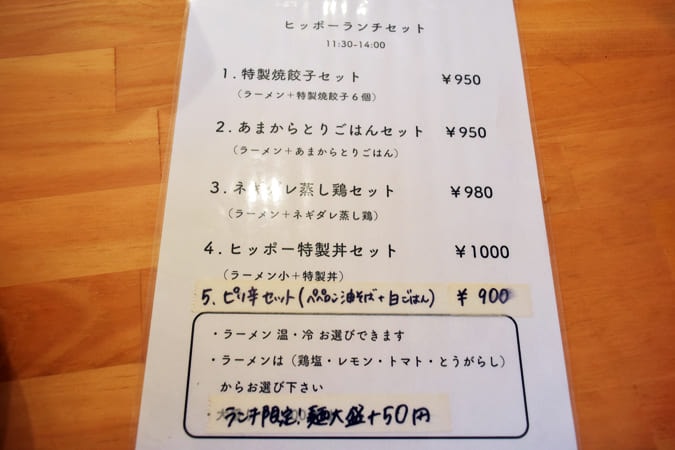 ヒッポーランチセット
11:30-14:00
1.特製焼餃子セット ¥950
（ラーメン＋特製焼餃子6個）
2.あまからとりごはんセット ¥950
（ラーメン＋あまからとりごはん）
3.ネギダレ蒸し鶏セット ¥980
（ラーメン＋ネギダレ蒸し鶏）
4.ヒッポー特製丼セット ¥1000
（ラーメン小＋特製丼）
5.ピリ辛セット(ペペロン油そば+白ごはん) ¥900
・ラーメン 温・冷 お選びできます
・ラーメンは（鶏塩・レモン・トマト・とうがらし）
からお選び下さい
ランチ限定.麺大盛+50円